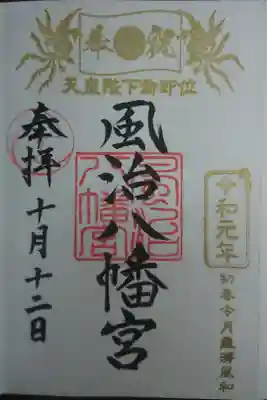 奉祝
天皇陛下御即位
令和元年
初春令月氣淑風和
風治八幡宮
風治
八幡宮
奉拝
十月十二日